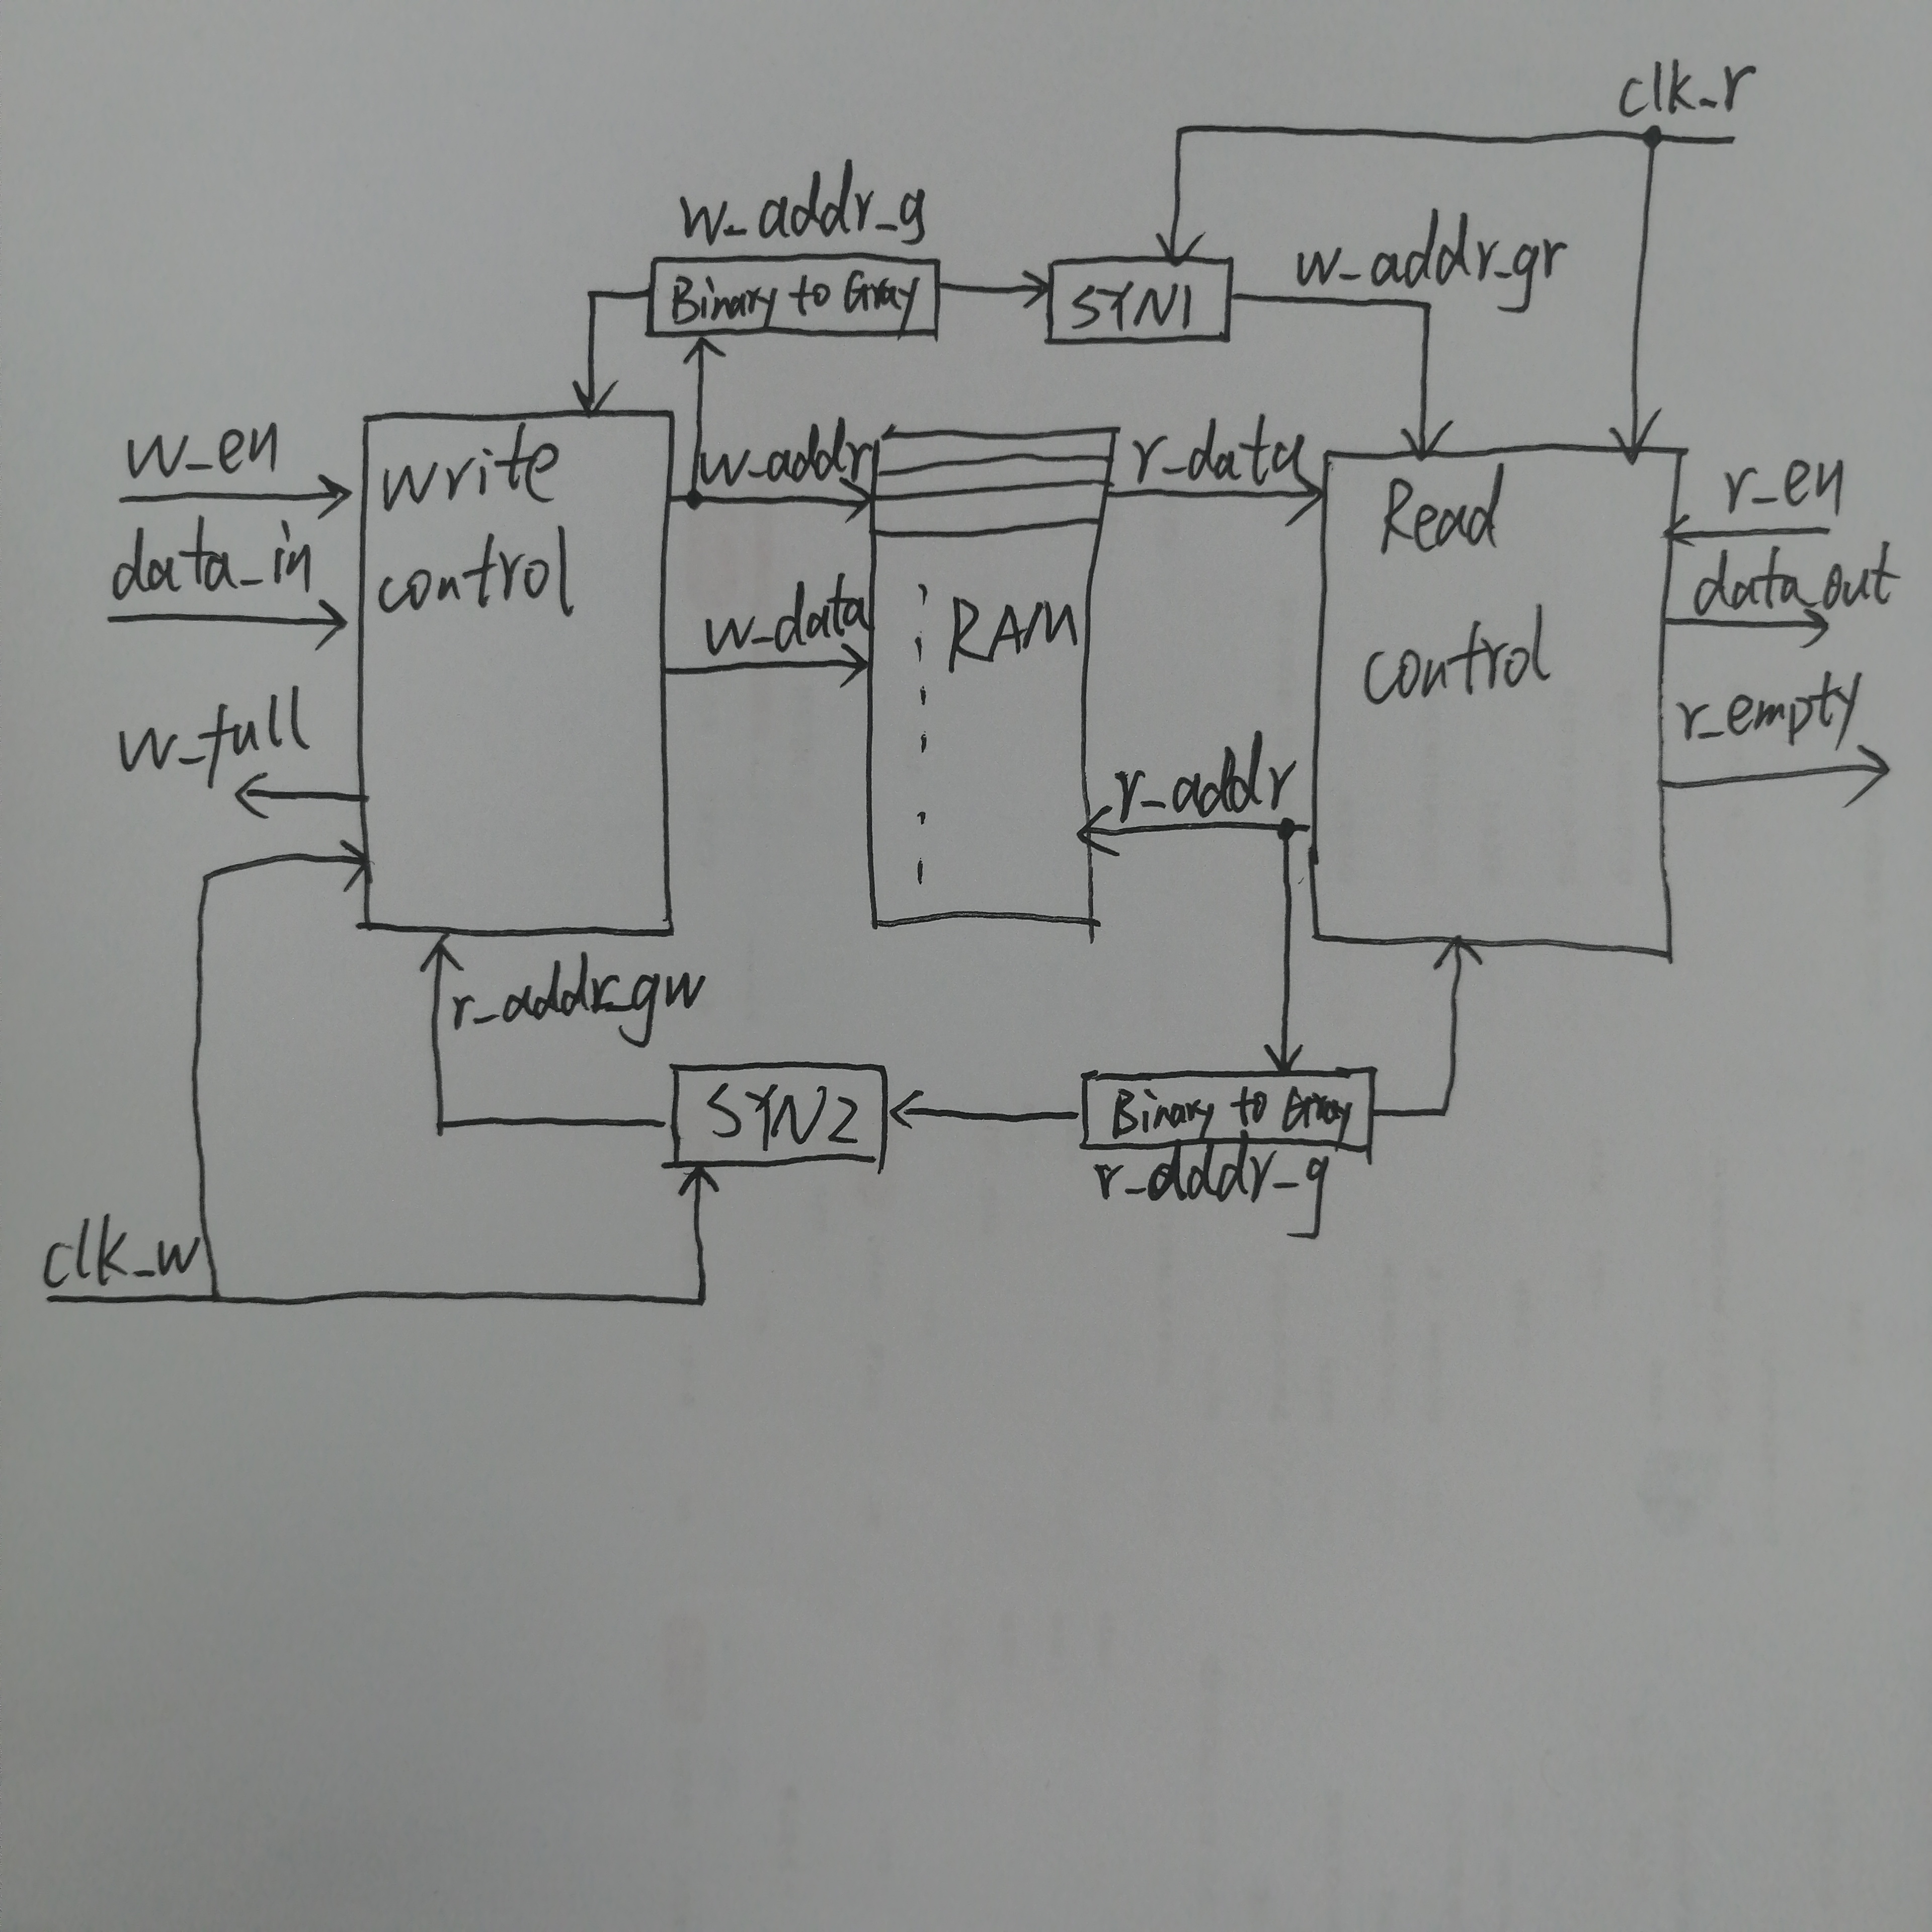 clk_r
w_addr_g
Binary to Gray
SYN1
w_addr_gr
w_en
data_in
w_full
write
control
w_addr
w_data
RAM
r_data
r_addr
Read
control
r_en
data_out
r_empty
r_addr_gw
SYN2
Binary to Gray
r_addr_g
clk_w